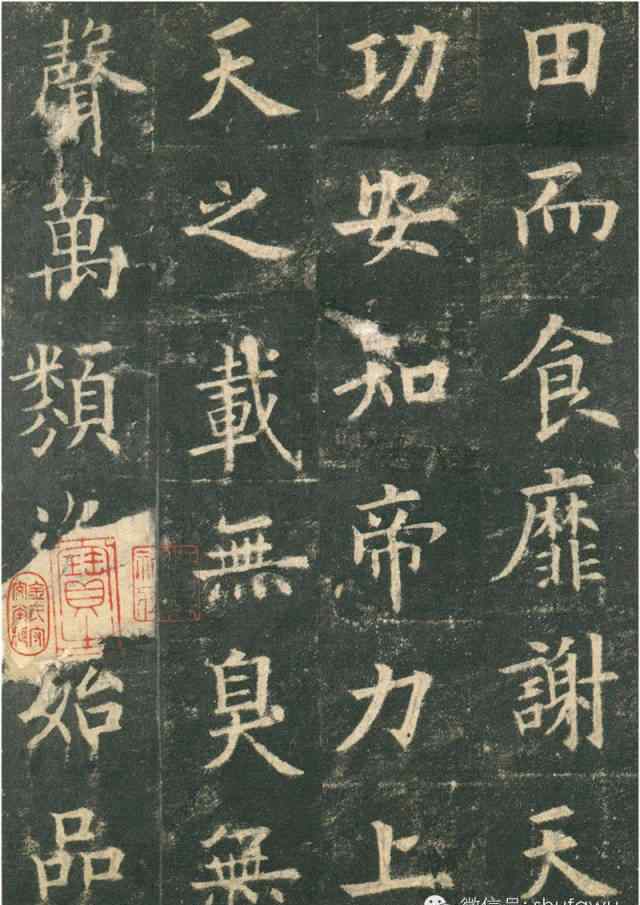 田而食靡謝天
功安知帝力上
天之載無臭無
聲萬類資始品
微信号: shufawu